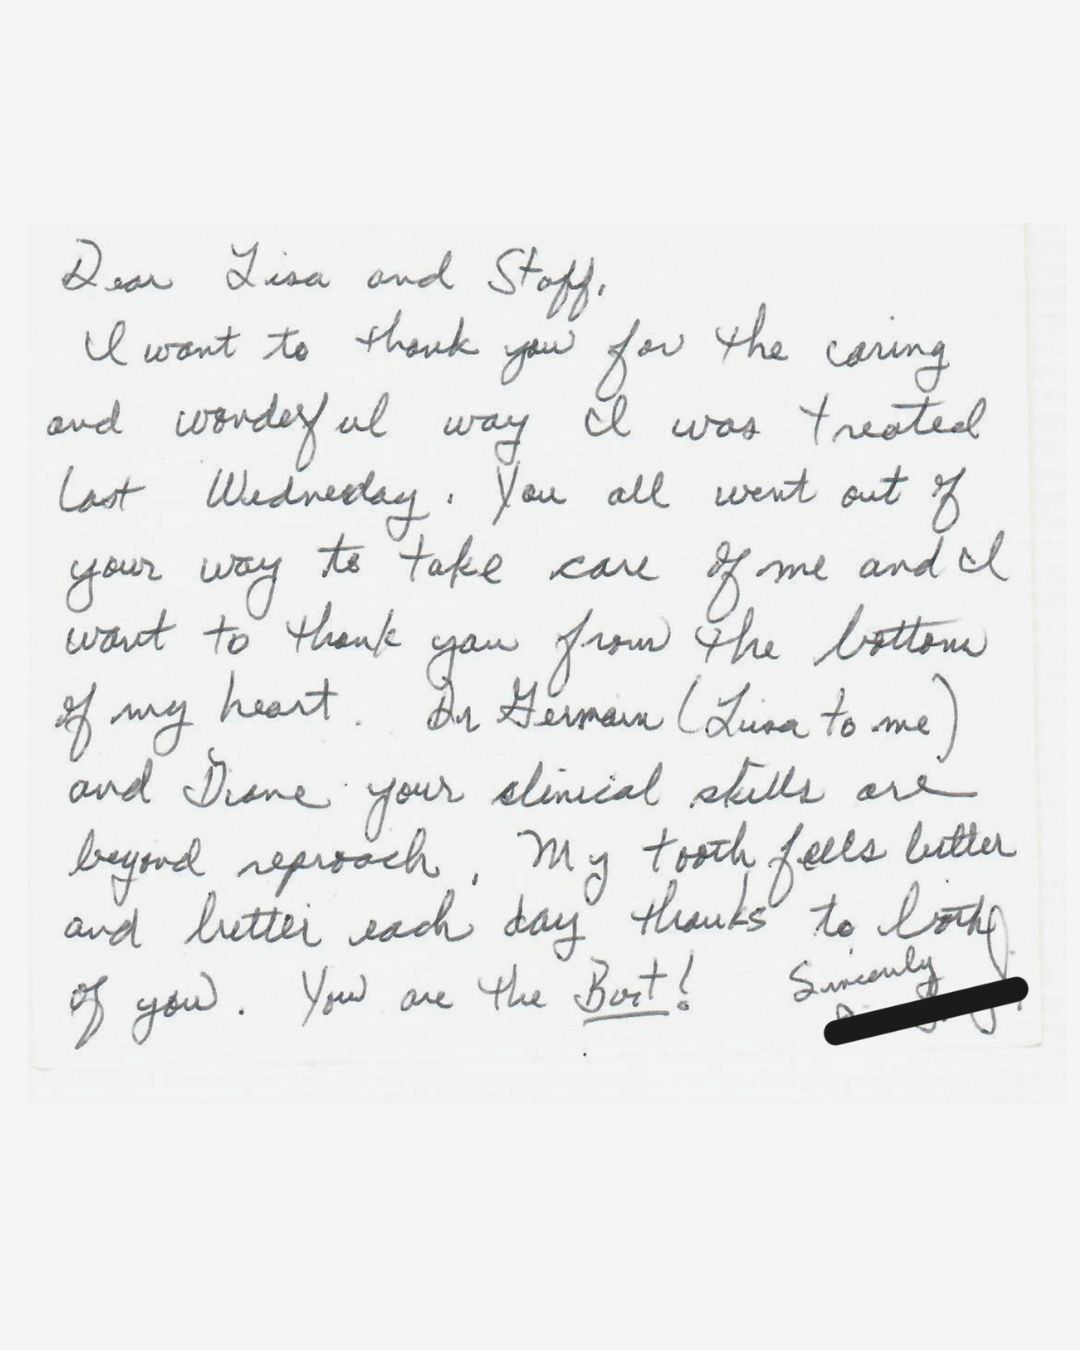 Dear Lisa and Staff,
I want to thank you for the caring
and wonderful way I was treated
last Wednesday. You all went out of
your way to take care of me and I
want to thank you from the bottom
of my heart. Dr Germain (Lisa to me)
and Diane your clinical skills are
beyond reproach. My tooth feels better
and better each day thanks to both
of you. You are the Best!
Sincerely